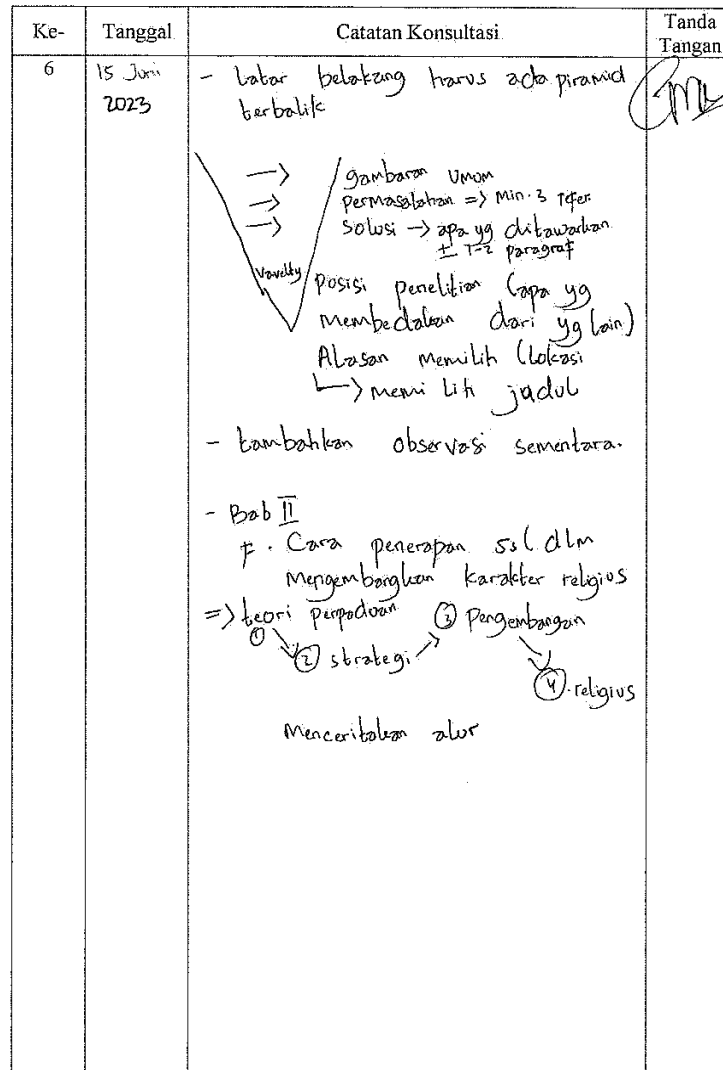 Ke-
Tanggal
Catatan Konsultasi
Tanda
Tangan
6
15 Juni
2023
- Latar belakang harus ada piramid
terbalik
gambaran umum
permasalahan => Min. 3 refer.
Solusi -> apa yg ditawarkan
± 1-2 paragraf
Vovelty
Posisi penelitian (apa yg
membedakan dari yg lain)
Alasan memilih (lokasi
memilih judul
- tambahkan observasi sementara.
- Bab II
F. Cara penerapan ssl dlm
Mengembangkan karakter religius
=> teori perpaduan ③ Pengembangan
①
② strategi
④ religius
Menceritakan alur